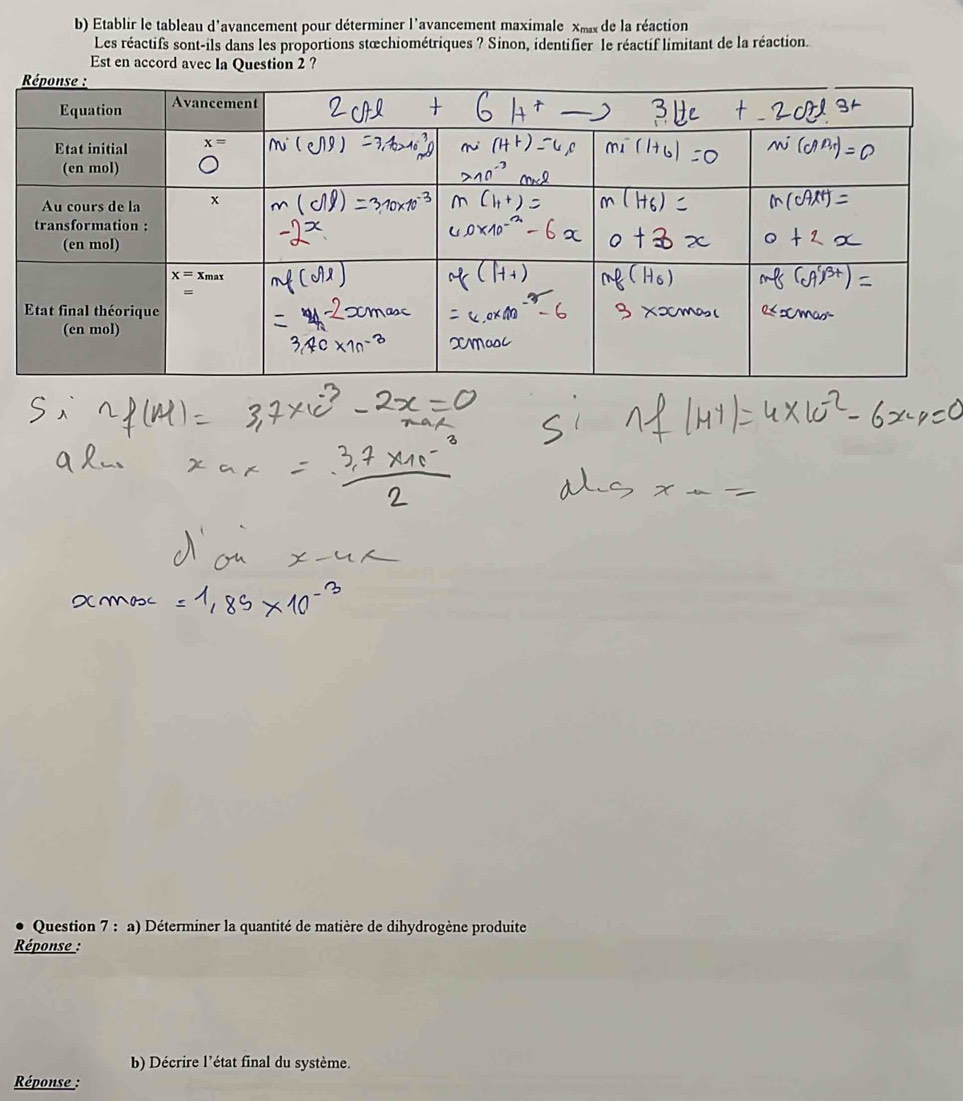 b) Etablir le tableau d'avancement pour déterminer l'avancement maximale xmax de la réaction
Les réactifs sont-ils dans les proportions stœchiométriques ? Sinon, identifier le réactif limitant de la réaction.
Est en accord avec la Question 2 ?
Réponse :
Equation
Avancement
2 Al + 6 H+ → 3 H2 + 2 Al 3+
Etat initial
(en mol)
x =
0
ni (Al) = 3,70×10-3 mol
ni (H+) = 4,0
×10-3 mol
ni (H2) = 0
ni (Al3+) = 0
Au cours de la
transformation :
(en mol)
x
n (Al) = 3,70×10-3
-2x
n (H+) =
4,0×10-2 - 6x
n (H2) =
0 + 3 x
n (Al3+) =
0 + 2 x
Etat final théorique
(en mol)
x = xmax
=
nf (Al)
= -2xmax
3,70 ×10-3
nf (H+)
= 4,0×10 - 6
xmax
nf (H2)
3 × xmax
nf (Al3+) =
2×xmax
Si nf(Al) = 3,7×10-3 - 2xmax = 0
alors xmax = 3,7 ×10-3
2
Si nf (H+) = 4×10-2 - 6xmax = 0
alors xmax =
d'où xmax
xmax = 1,85 ×10-3
• Question 7 : a) Déterminer la quantité de matière de dihydrogène produite
Réponse :
b) Décrire l'état final du système.
Réponse :